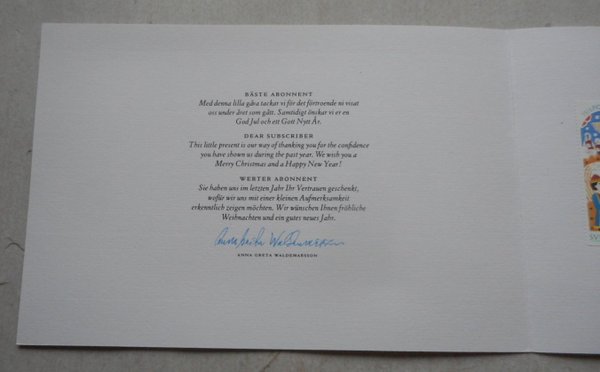 BÄSTE ABONNENT
Med denna lilla gåva tackar vi för det förtroende ni visat
oss under året som gått. Samtidigt önskar vi er en
God Jul och ett Gott Nytt År.
DEAR SUBSCRIBER
This little present is our way of thanking you for the confidence
you have shown us during the past year. We wish you a
Merry Christmas and a Happy New Year!
WERTER ABONNENT
Sie haben uns im letzten Jahr Ihr Vertrauen geschenkt,
wofür wir uns mit einer kleinen Aufmerksamkeit
erkenntlich zeigen möchten. Wir wünschen Ihnen fröhliche
Weihnachten und ein gutes neues Jahr.
Anna Greta Waldemarsson
ANNA GRETA WALDEMARSSON
SV